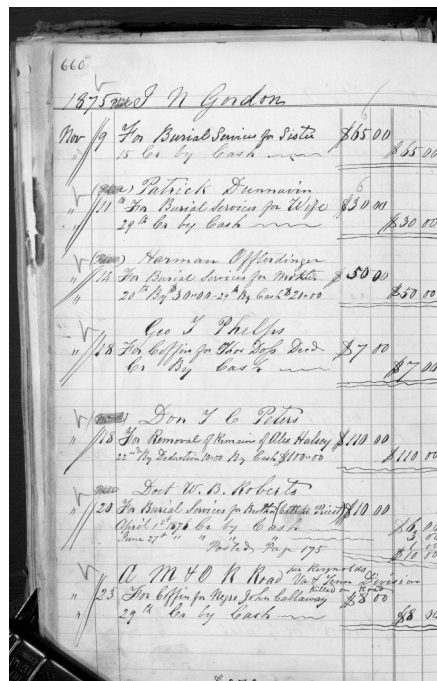 660
1875 J N Gordon
Nov 9 For Burial Services for Sister $65 00
" 15 Cr by Cash $65 00
Patrick Dunnavin
" 11th For Burial Services for Wife $30 00
" 29th Cr by Cash $30 00
Harman Offlerdinger
" 14 For Burial Services for Mother $50 00
20th By $30-00 - 29th By Cash $20-00 $50 00
Geo T Phelps
" 18 For Coffin for Thos Doss Decd $7 00
Cr By Cash $7 00
Don T C Peters
" 18 For Removal of Remains of Alex Halsey $110 00
22nd By Deduction 10-00 By Cash $100-00 $110 00
Doct W. B. Roberts
" 20 For Burial Services for Brother (Catholic Priest) $10 00
April 1st 1876 Cr by Cash $6 00
June 27th " " " 3 00
Posted Page 175 $10 00
A M & O R Road per Reynolds Va & Tenn Division
Killed on Road
" 23 For Coffin for Negro John Callaway $8 00
29th Cr by Cash $8 00